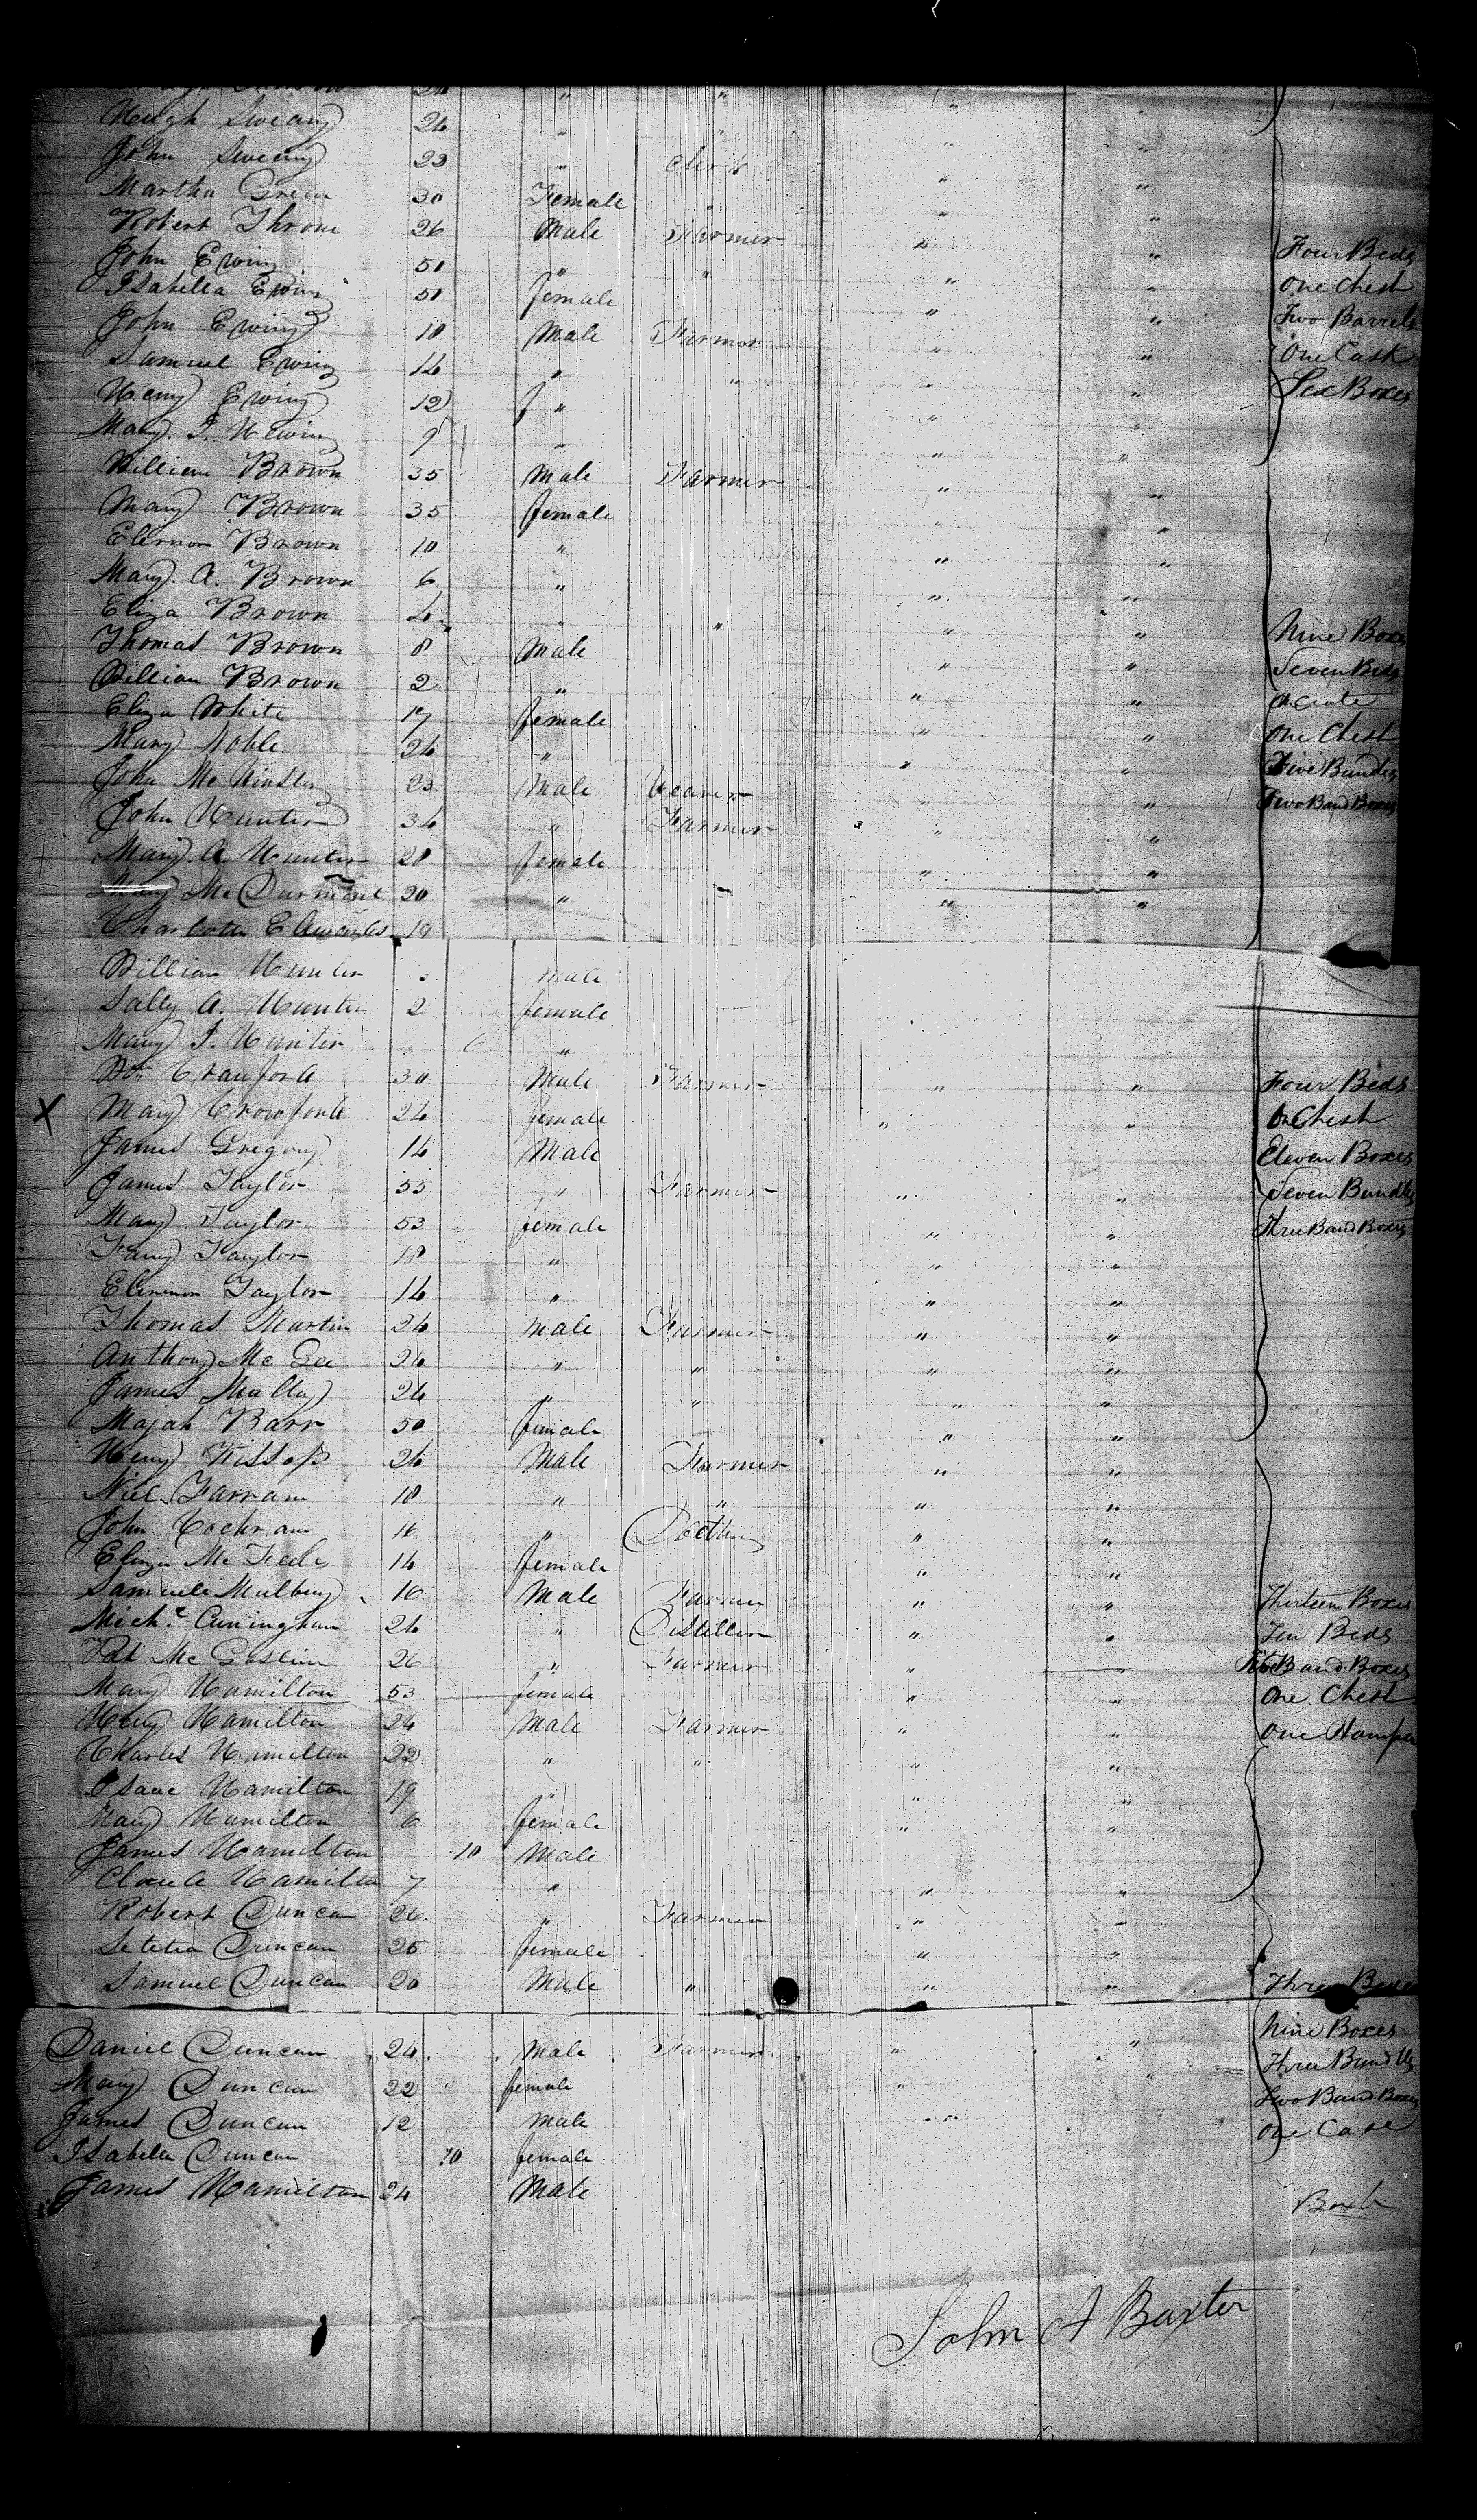 Hugh Sweany 24 " "
John Sweeny 23 " Clerk " "
Martha Green 30 Female " " "
Robert Throne 26 Male Farmer " "
John Ewing 50 " " " " Four Beds
Isabella Ewing 50 female " " One Chest
John Ewing 18 Male Farmer " " Two Barrels
Samuel Ewing 14 " " " " One Cask
Henry Ewing 12 f " " " Six Boxes
Mary J. H Ewing 9 " " "
William Brown 35 Male Farmer " "
Mary Brown 35 female " "
Elernor Brown 10 " " "
Mary A. Brown 6 " " "
Eliza Brown 4 " " " "
Thomas Brown 8 Male " " Nine Boxes
William Brown 2 " " " Seven Beds
Eliza White 17 female " "
Mary Noble 24 " " " One Chest
John Mc 23 Male Weaver " " Five Bundles
John Hunter 34 " Farmer " " Two Band Boxes
Mary A Hunter 28 female " "
Mary Mc Durmont 20 " " "
Charlotte Edwards 19
William Hunter Male
Sally A. Hunter 2 female
Mary J. Hunter 6 "
Wm Crauford 30 Male Farmer " " Four Beds
X Mary Crowford 24 female " " On Chest
James Gregory 14 Male Eleven Boxes
James Taylor 55 " Farmer " " Seven Bundles
Mary Taylor 53 female " " Three Band Boxes
Fanny Taylor 18 " " "
Elernor Taylor 14 " " "
Thomas Martin 24 Male Farmer " "
Anthony Mc Gee 24 " " " "
James Mally 24 " " " "
Majah Barr 50 female " "
Henry 24 Male Farmer " "
Niel Farran 18 " " " "
John Cochran 16 " " "
Eliza Mc 14 female " "
Samuele Mulberry 16 Male Farmer " " Thirteen Boxes
Michl Cuningham 24 " Distiller " " Ten Beds
Pat Mc 26 " Farmer " " Band Boxes
Mary Hamilton 53 female " " One Chest
Henry Hamilton 24 Male Farmer " " One Hamper
Charles Hamilton 22 " " " "
Isaac Hamilton 19 " " " "
Mary Hamilton 6 female " "
James Hamilton 10 Male
Hamilton 7 " " "
Robert Duncan 26 " Farmer " "
Letetia Duncan 25 female " "
Samuel Duncan 20 Male " " " Three
Nine Boxes
Daniel Duncan 24 Male Farmer " " Three Bundles
Mary Duncan 22 female " " Two Band Boxes
James Duncan 12 Male " One Case
Isabella Duncan 10 female
James Hamilton 24 Male
John A Baxter